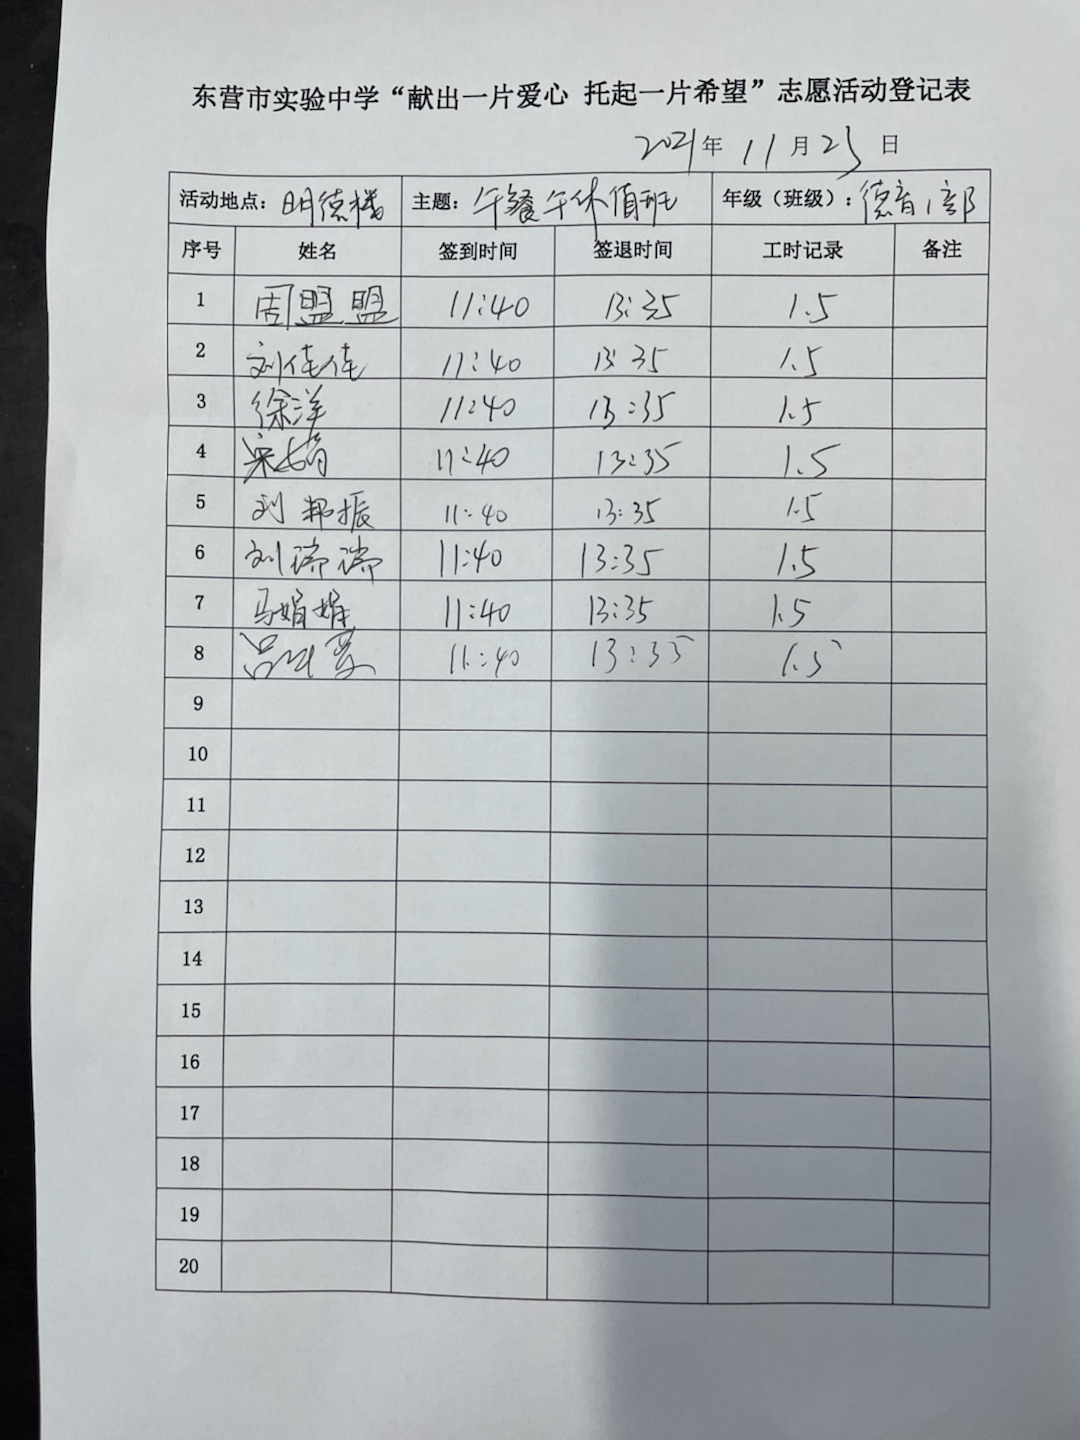 东营市实验中学“献出一片爱心 托起一片希望”志愿活动登记表
2021年 11月25日
活动地点：明德楼 主题：午餐午休值班 年级（班级）：德育部
序号 姓名 签到时间 签退时间 工时记录 备注
1 周盟盟 11:40 13:35 1.5
2 刘佳佳 11:40 13:35 1.5
3 徐洋 11:40 13:35 1.5
4 宋婧 11:40 13:35 1.5
5 刘邦振 11:40 13:35 1.5
6 刘瑞瑞 11:40 13:35 1.5
7 马娟娟 11:40 13:35 1.5
8 11:40 13:35 1.5
9
10
11
12
13
14
15
16
17
18
19
20